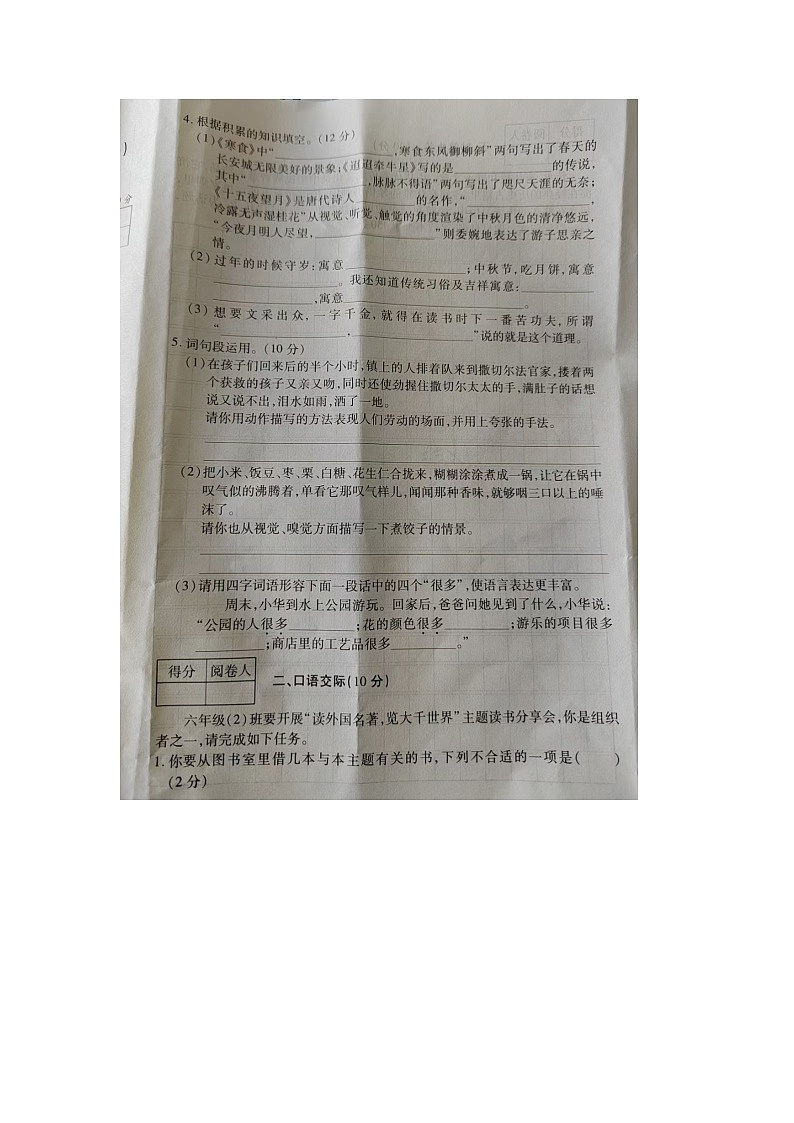 4. 根据积累的知识填空。(12分)
(1)《寒食》中“____________,寒食东风御柳斜”两句写出了春天的
长安城无限美好的景象;《迢迢牵牛星》写的是____________的传说,
其中“____________,脉脉不得语”两句写出了咫尺天涯的无奈;
《十五夜望月》是唐代诗人________的名作,“____________,
冷露无声湿桂花”从视觉、听觉、触觉的角度渲染了中秋月色的清净悠远,
“今夜月明人尽望,____________”则委婉地表达了游子思亲之
情。
(2)过年的时候守岁:寓意____________;中秋节,吃月饼,寓意
____________。我还知道传统习俗及吉祥寓意:________
____________,寓意____________。
(3)想要文采出众,一字千金,就得在读书时下一番苦功夫,所谓
“____________,____________”说的就是这个道理。
5. 词句段运用。(10分)
(1)在孩子们回来后的半个小时,镇上的人排着队来到撒切尔法官家,搂着两
个获救的孩子又亲又吻,同时还使劲握住撒切尔太太的手、满肚子的话想
说又说不出,泪水如雨,洒了一地。
请你用动作描写的方法表现人们劳动的场面,并用上夸张的手法。
(2)把小米、饭豆、枣、栗、白糖、花生仁合拢来,糊糊涂涂煮成一锅,让它在锅中
叹气似的沸腾着,单看它那叹气样儿,闻闻那种香味,就够咽三口以上的唾
沫了。
请你也从视觉、嗅觉方面描写一下煮饺子的情景。
(3)请用四字词语形容下面一段话中的四个“很多”,使语言表达更丰富。
周末,小华到水上公园游玩。回家后,爸爸问她见到了什么,小华说:
“公园的人很多________;花的颜色很多________;游乐的项目很多
________;商店里的工艺品很多________。”
得分 阅卷人
二、口语交际(10分)
六年级(2)班要开展“读外国名著,览大千世界”主题读书分享会,你是组织
者之一,请完成如下任务。
1. 你要从图书室里借几本与本主题有关的书,下列不合适的一项是( )
(2分)